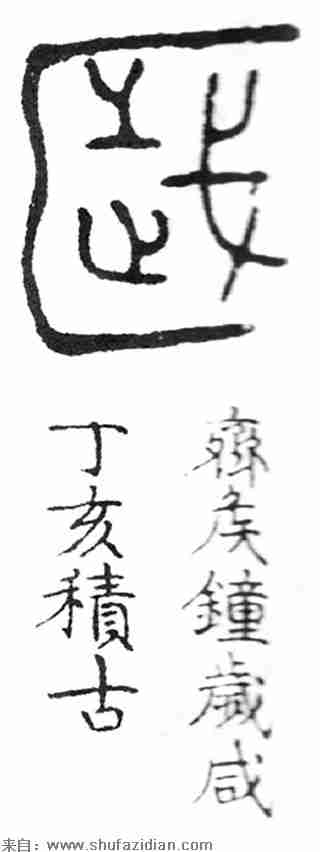 齊矦鐘歲咸
丁亥積古
来自：www.shufazidian.com